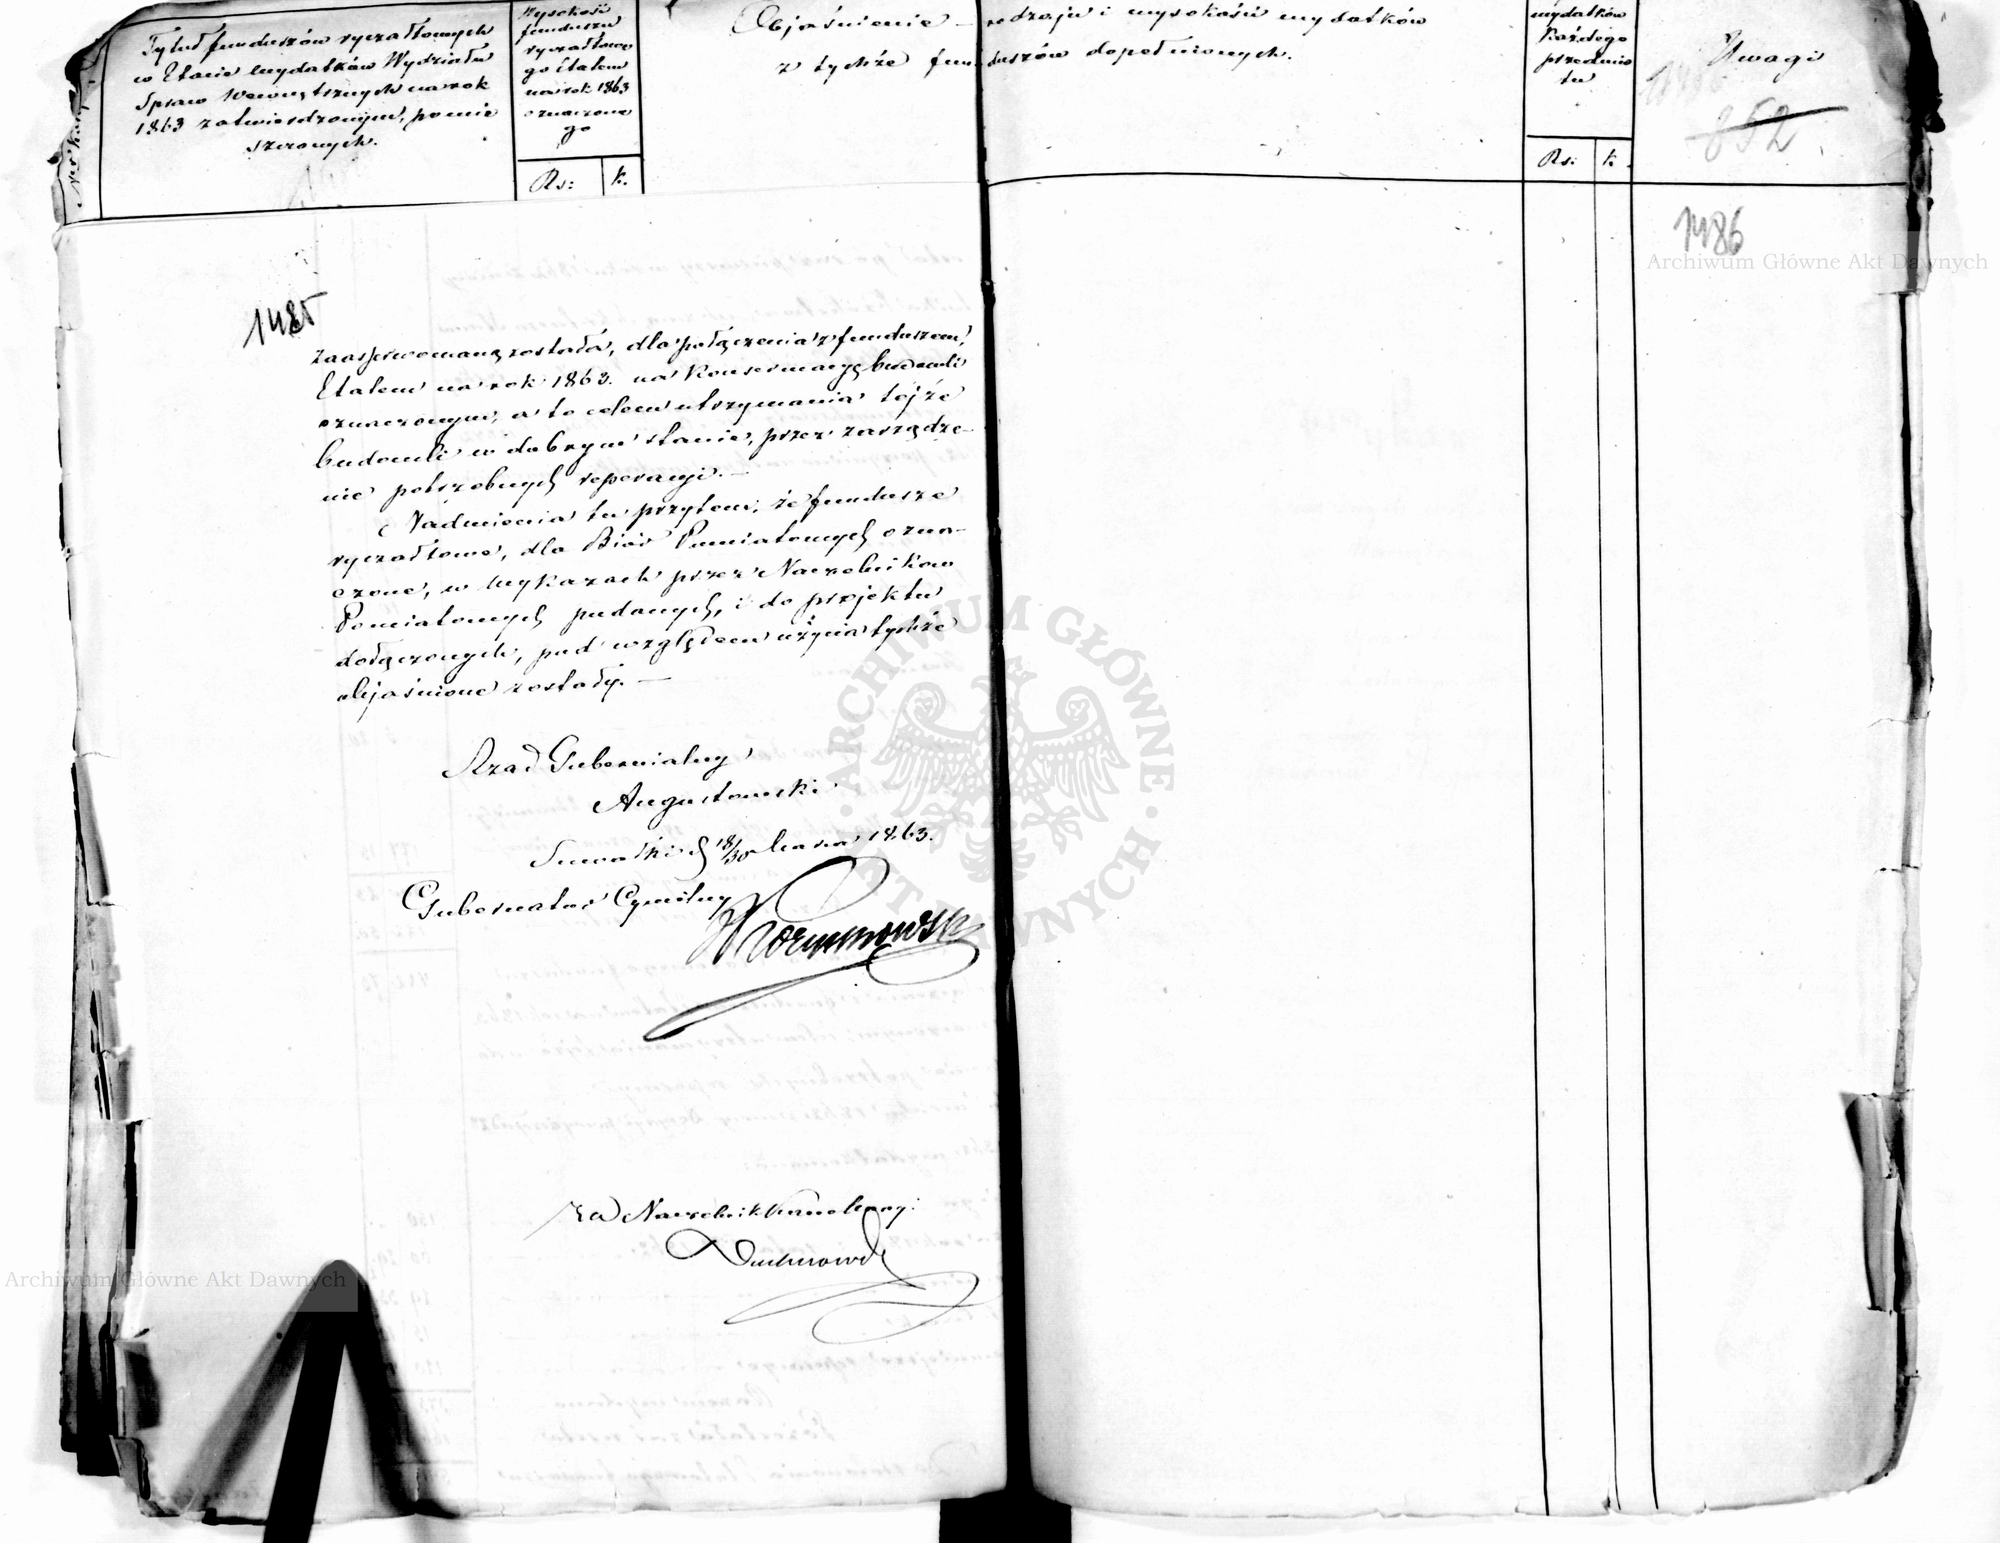 Tytuł funduszów ryczałtowych
w Etacie wydatków Wydziału
Spraw Wewnętrznych na rok
1863 zatwierdzonym, pomie
szczonych.
Wysokość
funduszu
ryczałtowe
go Etatem
na rok 1863
oznaczone
go
Rs: k.
Objaśnienie rodzaju i wysokości wydatków
z tychże funduszów dopełnionych.
wydatków
Każdego
przedmio
tu
Rs: k.
Uwagi
852
1486
1485
zaasserwowaną została, dla połączenia z funduszem,
Etatem na rok 1863. na Konserwacyę budowli
oznaczonym, a to celem utrzymania tejże
budowli w dobrym stanie, przez zarządze-
nie potrzebnych reperacyi.—
Nadmienia tu przytem, że fundusze
ryczałtowe, dla Biór Powiatowych ozna-
czone, w Wykazach przez Naczelników
Powiatowych podanych, i do projektu
dołączonych, pod względem użycia tychże
objaśnione zostały.—
Rząd Gubernialny
Augustowski
Suwałki d 18/30 Marca 1863.
Gubernator Cywilny
za Naczelnik Kancelaryi
Archiwum Główne Akt Dawnych
Archiwum Główne Akt Dawnych
ARCHIWUM GŁÓWNE AKT DAWNYCH